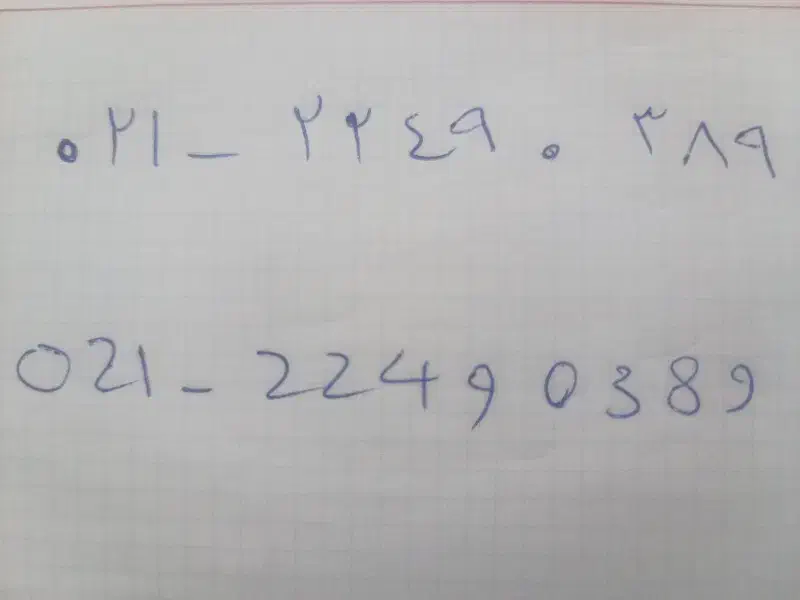 ۰۲۱ - ۲۲٤۹۰۳۸۹
021 - 22490389